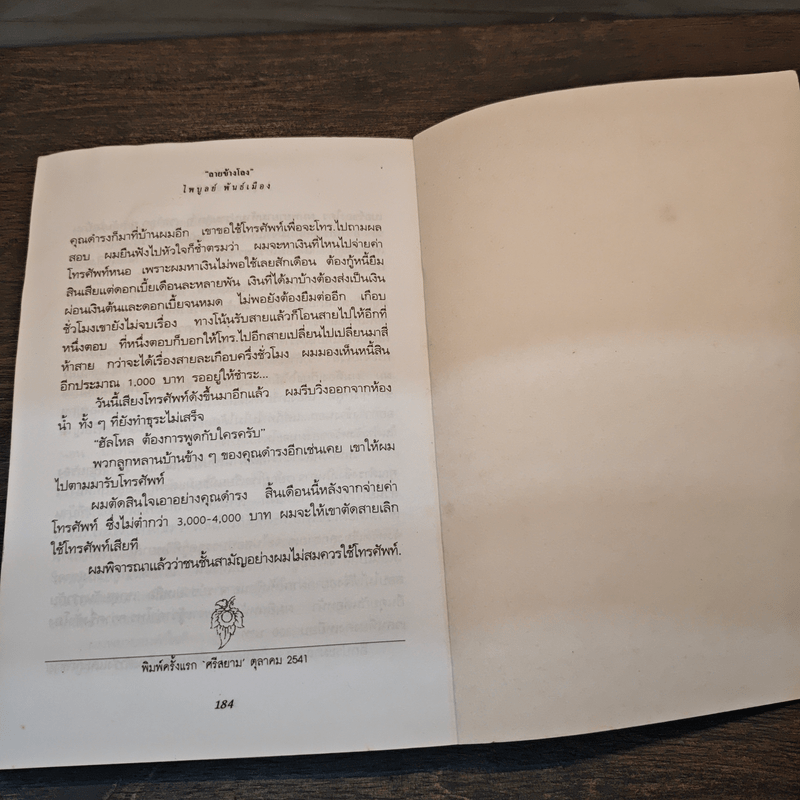 "ลายข้างโลง"
ไพบูลย์ พันธ์เมือง
คุณดำรงก็มาที่บ้านผมอีก เขาขอใช้โทรศัพท์เพื่อจะโทร.ไปถามผล
สอบ ผมยืนฟังไปหัวใจก็ช้ำตรมว่า ผมจะหาเงินที่ไหนไปจ่ายค่า
โทรศัพท์หนอ เพราะผมหาเงินไม่พอใช้เลยสักเดือน ต้องกู้หนี้ยืม
สินเสียแต่ดอกเบี้ยเดือนละหลายพัน เงินที่ได้มาบ้างต้องส่งเป็นเงิน
ผ่อนเงินต้นและดอกเบี้ยจนหมด ไม่พอยังต้องยืมต่ออีก เกือบ
ชั่วโมงเขายังไม่จบเรื่อง ทางโน้นรับสายแล้วก็โอนสายไปให้อีกที่
หนึ่งตอบ ที่หนึ่งตอบก็บอกให้โทร.ไปอีกสายเปลี่ยนไปเปลี่ยนมาสี่
ห้าสาย กว่าจะได้เรื่องสายละเกือบครึ่งชั่วโมง ผมมองเห็นหนี้สิน
อีกประมาณ 1,000 บาท รออยู่ให้ชำระ...
วันนี้เสียงโทรศัพท์ดังขึ้นมาอีกแล้ว ผมรีบวิ่งออกจากห้อง
น้ำ ทั้ง ๆ ที่ยังทำธุระไม่เสร็จ
"ฮัลโหล ต้องการพูดกับใครครับ"
พวกลูกหลานบ้านข้าง ๆ ของคุณดำรงอีกเช่นเคย เขาให้ผม
ไปตามมารับโทรศัพท์
ผมตัดสินใจเอาอย่างคุณดำรง สิ้นเดือนนี้หลังจากจ่ายค่า
โทรศัพท์ ซึ่งไม่ต่ำกว่า 3,000-4,000 บาท ผมจะให้เขาตัดสายเลิก
ใช้โทรศัพท์เสียที
ผมพิจารณาแล้วว่าชนชั้นสามัญอย่างผมไม่สมควรใช้โทรศัพท์.
พิมพ์ครั้งแรก 'ศรีสยาม' ตุลาคม 2541
184